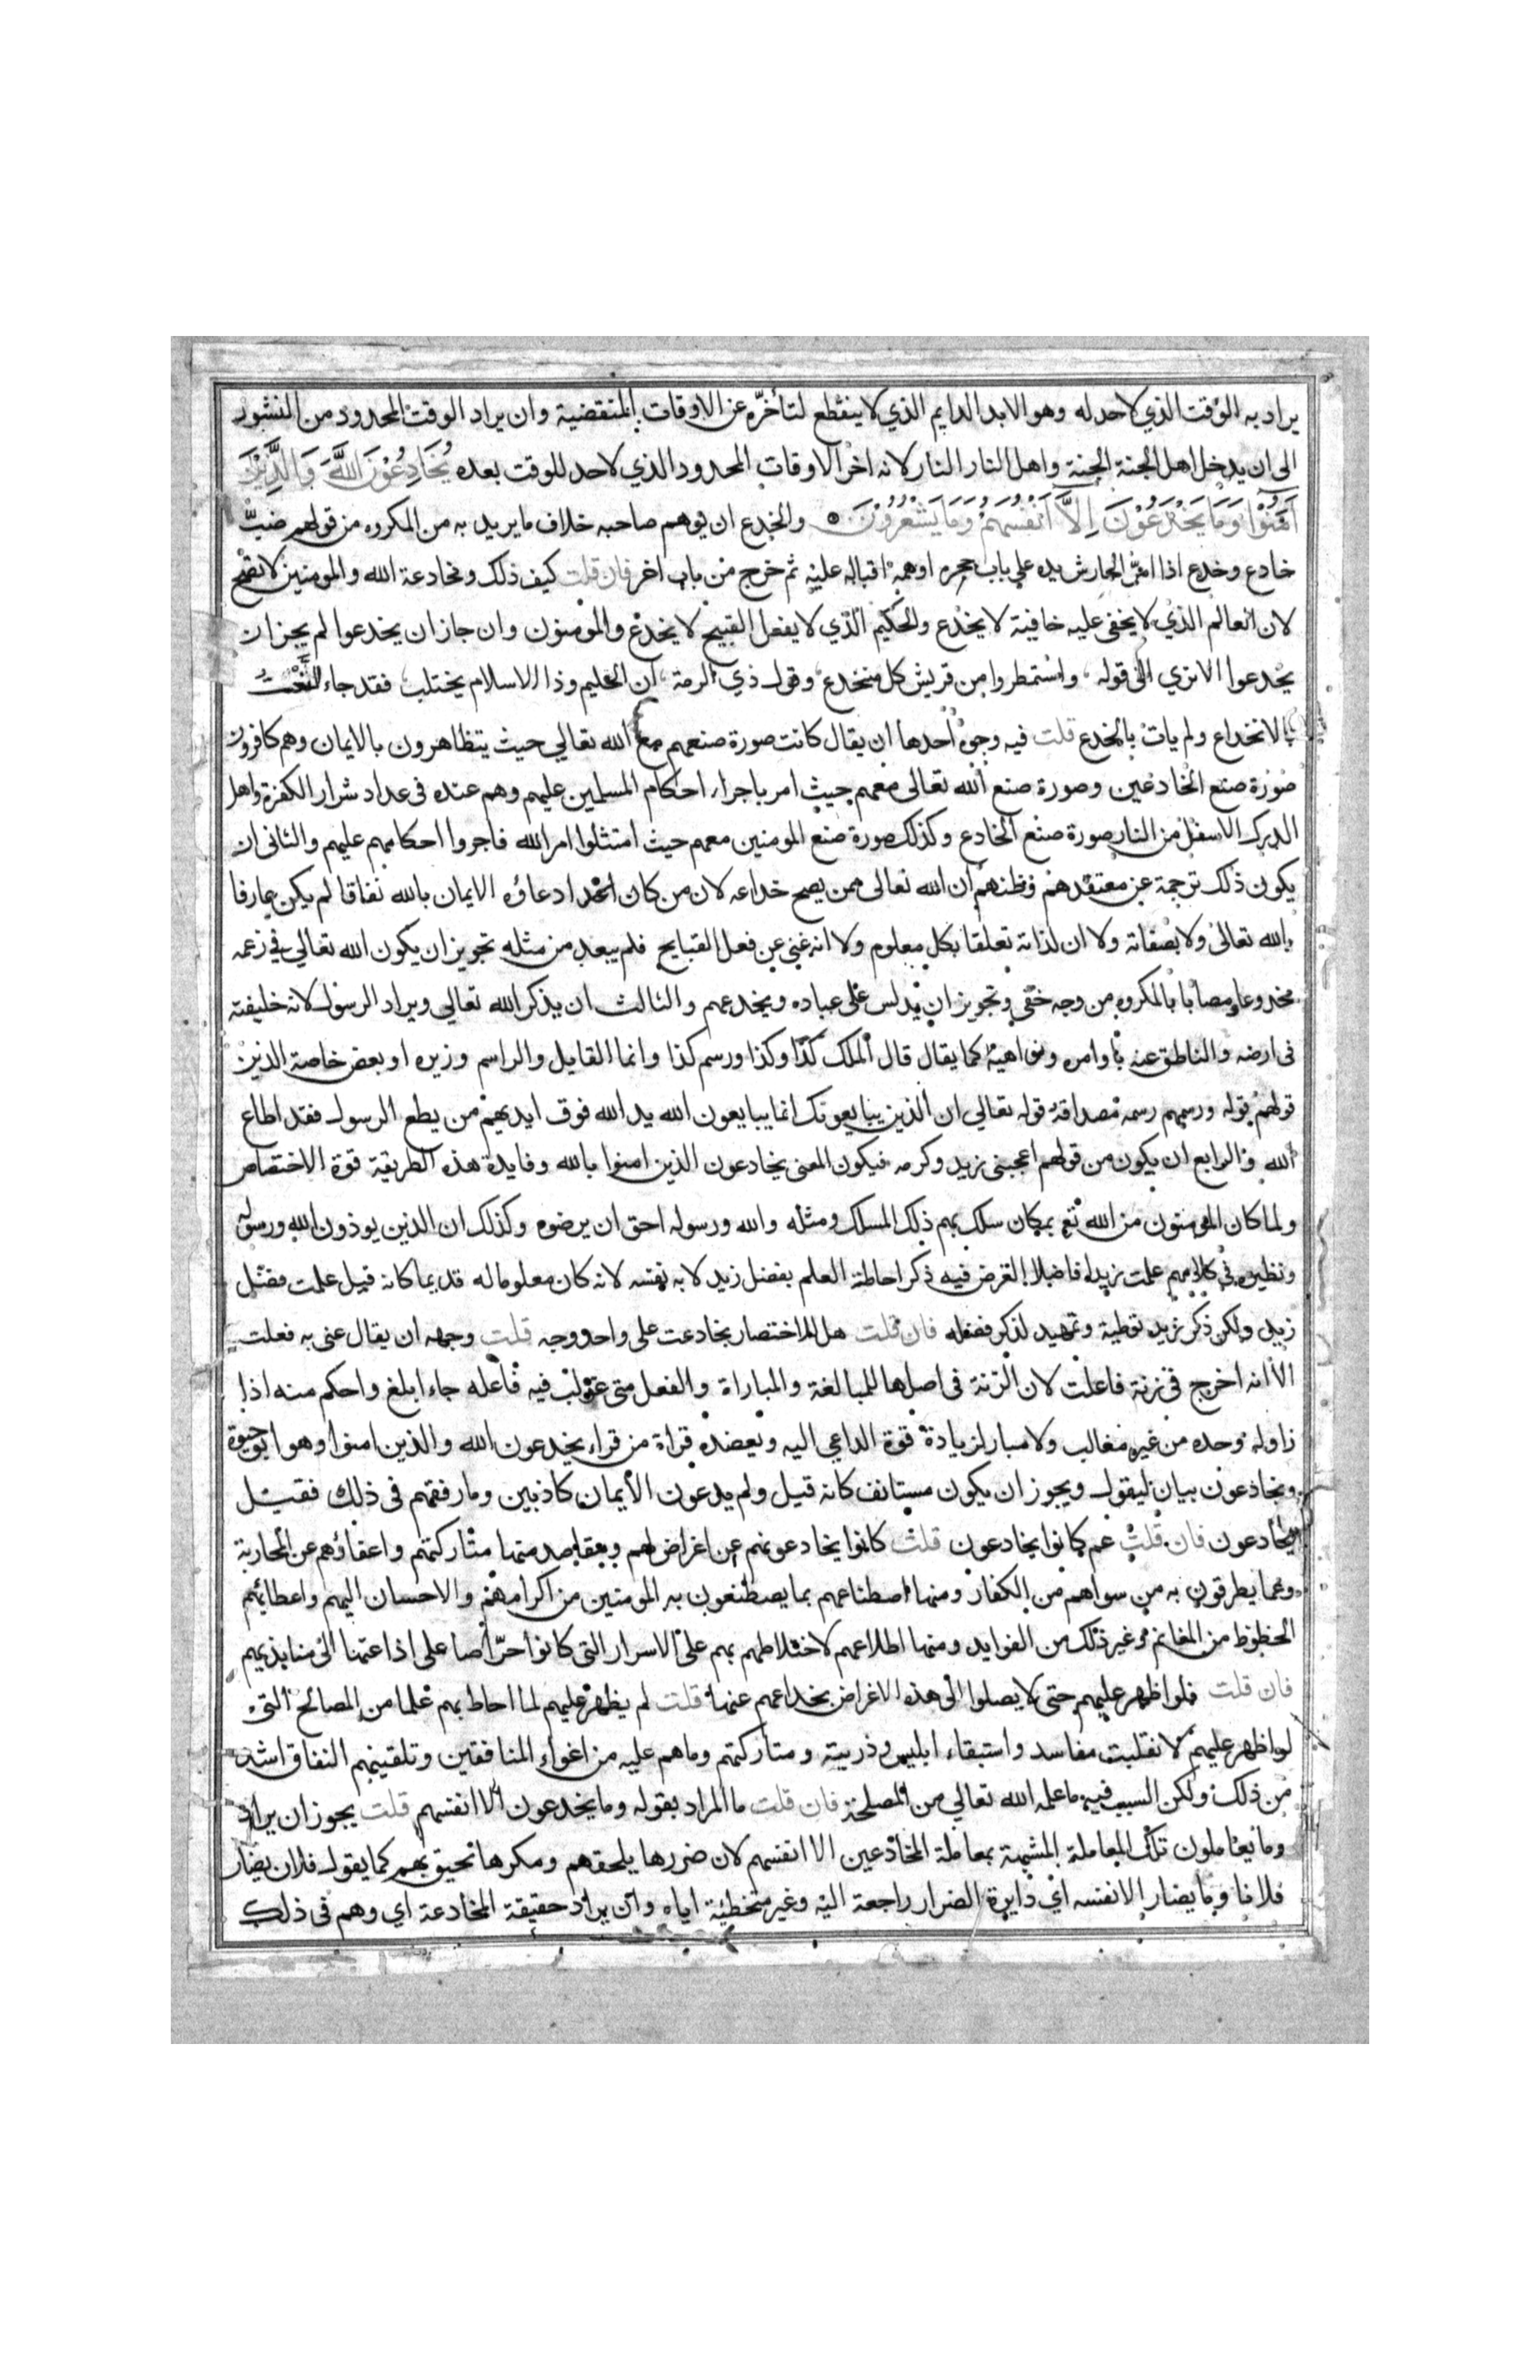 يراد به الوقت الذي لا حد له وهو الابد الدايم الذي لا ينقطع لتأخره عن الاوقات المنقضية وان يراد الوقت المحدود من النشور
الى ان يدخل اهل الجنة الجنة واهل النار النار لانه اخر الاوقات المحدود الذي لا حد للوقت بعده يُخَادِعُوْنَ اللَّهَ وَالَّذِيْنَ
آمَنُوْا وَمَا يَخْدَعُوْنَ اِلَّا اَنْفُسَهُمْ وَمَا يَشْعُرُوْنَ والخدع ان يوهم صاحبه خلاف ما يريد به من المكروه من قولهم ضبّ
خادع وخدع اذا امرّ الحارش يده على باب جحره اوهمه اقباله عليه ثم خرج من باب اخر فان قلت كيف ذلك ومخادعة الله والمومنين لا تصح
لان العالم الذي لا يخفى عليه خافية لا يخدع والحكيم الذي لا يفعل القبيح لا يخدع والمومنون وان جاز ان يخدعوا لم يجز ان
يخدعوا الا ترى الى قوله واستمطروا من قريش كل منخدع وقول ذي الرمة ان الحليم وذا الاسلام يختلب فقد جاء النعت
بالانخداع ولم يات بالخدع قلت فيه وجوه احدها ان يقال كانت صورة صنعهم مع الله تعالي حيث يتظاهرون بالايمان وهم كافرون
صورة صنع الخادعين وصورة صنع الله تعالى معهم حيث امر باجراء احكام المسلمين عليهم وهم عنده في عداد شرار الكفرة واهل
الدرك الاسفل من النار صورة صنع الخادع وكذلك صورة صنع المومنين معهم حيث امتثلوا امر الله فاجروا احكامهم عليهم والثاني ان
يكون ذلك ترجمة عن معتقدهم وظنهم ان الله تعالى ممن يصح خداعه لان من كان ادعاؤه الايمان بالله نفاقا لم يكن عارفا
بالله تعالى ولا بصفاته ولا ان لذاته تعلقا بكل معلوم ولا انه غني عن فعل القبايح فلم يبعد من مثله تجويز ان يكون الله تعالي في زعمه
مخدوعا ومصابا بالمكروه من وجه خفي وتجويز ان يدلس على عباده ويخدعهم والثالث ان يذكر الله تعالي ويراد الرسول لانه خليفته
في ارضه والناطق عنه باوامره ونواهيه كما يقال قال الملك كذا وكذا ورسم كذا وانما القايل والراسم وزيره او بعض خاصة الذين
قولهم قوله ورسمهم رسمه مصداقه قوله تعالي ان الذين يبايعونك انما يبايعون الله يد الله فوق ايديهم من يطع الرسول فقد اطاع
الله والرابع ان يكون من قولهم اعجبني زيد وكرمه فيكون المعنى يخادعون الذين امنوا بالله وفايدة هذه الطريقة قوة الاختصاص
ولما كان المومنون من الله بمكان سلك بهم ذلك المسلك ومثله والله ورسوله احق ان يرضوه وكذلك ان الذين يوذون الله ورسوله
ونظيره في كلامهم علمت زيدا فاضلا الغرض فيه ذكر احاطة العلم بفضل زيد لا به نفسه لانه كان معلوما له قديما كانه قيل علمت فضل
زيد ولكن ذكر زيد توطية وتمهيد لذكر فضله فان قلت هل للاختصار بخادعت على واحد وجه قلت وجهه ان يقال عني به فعلت
الا انه اخرج في زنة فاعلت لان الزنة في اصلها للمبالغة والمباراة والفعل متى غولب فيه فاعله جاء ابلغ واحكم منه اذا
زاوله وحده من غير مغالب ولا مبار لزيادة قوة الداعي اليه وتعضده قراة من قراء يخدعون الله والذين امنوا وهو ابو حيوة
ويخادعون بيان ليقول ويجوز ان يكون مستانف كانه قيل ولم يدعون الايمان كاذبين وما رفقهم في ذلك فقيل
يخادعون فان قلت عم كانوا يخادعون قلت كانوا يخادعونهم عن اغراض لهم ومقاصد منها متاركتهم واعفاؤهم عن المحاربة
وعما يطرقون به من سواهم من الكفار ومنها اصطناعهم بما يصطنعون به المومنين من اكرامهم والاحسان اليهم واعطائهم
الحظوظ من المغانم وغير ذلك من الفوايد ومنها اطلاعهم لاختلاطهم بهم على الاسرار التي كانوا حرّاصا على اذاعتها الى منابذيهم
فان قلت فلو اظهر عليهم حتى لا يصلوا الى هذه الاغراض بخداعهم عنها قلت لم يظهر عليهم لما احاط بهم علما من المصالح التي
لو اظهر عليهم لانقلبت مفاسد واستبقاء ابليس وذريته ومتاركتهم وما هم عليه من اغواء المنافقين وتلقينهم النفاق اشد
من ذلك ولكن السبب فيه ما علمه الله تعالي من المصلحة فان قلت ما المراد بقوله وما يخدعون الا انفسهم قلت يجوز ان يراد
وما يعاملون تلك المعاملة المشبهة بمعاملة المخادعين الا انفسهم لان ضررها يلحقهم ومكرها تحيق بهم كما يقول فلان يضار
فلانا وما يضار الا نفسه اي دايرة الضرار راجعة اليه وغير متخطية اياه وان يراد حقيقة المخادعة اي وهم في ذلك